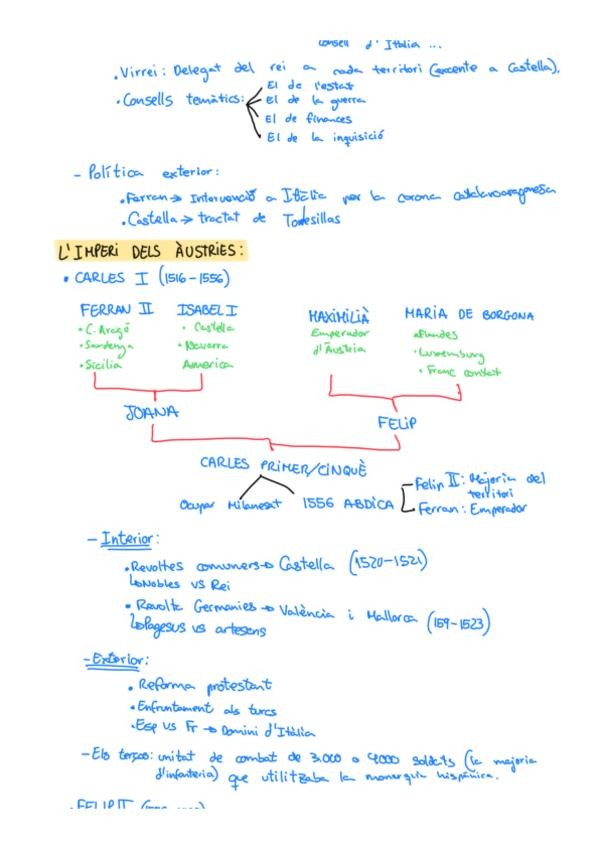 consell d'Itàlia ...
• Virrei: Delegat del rei a cada territori (excepte a Castella).
• Consells temàtics:
El de l'estat
El de la guerra
El de finances
El de la inquisició
- Política exterior:
• Ferran → Intervenció a Itàlia per la corona catalanoaragonesa
• Castella → tractat de Tordesillas
L'IMPERI DELS ÀUSTRIES:
• CARLES I (1516-1556)
FERRAN II ISABEL I MAXIMILIÀ MARIA DE BORGONA
• C. Aragó • Castella Emperador • Flandes
• Sardenya • Navarra d'Àustria • Luxemburg
• Sicília Amèrica • Franc contat
JOANA FELIP
CARLES PRIMER/CINQUÈ
Ocupar Milanesat 1556 ABDICA
Felip II: Majoria del
territori
Ferran: Emperador
- Interior:
• Revoltes comuners → Castella (1520-1521)
↳ Nobles vs Rei
• Revolta Germanies → València i Mallorca (159-1523)
↳ Pagesus vs artesens
- Exterior:
• Reforma protestant
• Enfruntament als turcs
• Esp vs Fr → Domini d'Itàlia
- Els terços: unitat de combat de 3.000 a 4000 soldats (la majoria
d'infanteria) que utilitzaba la monarquia hispànica.
• FELIP II